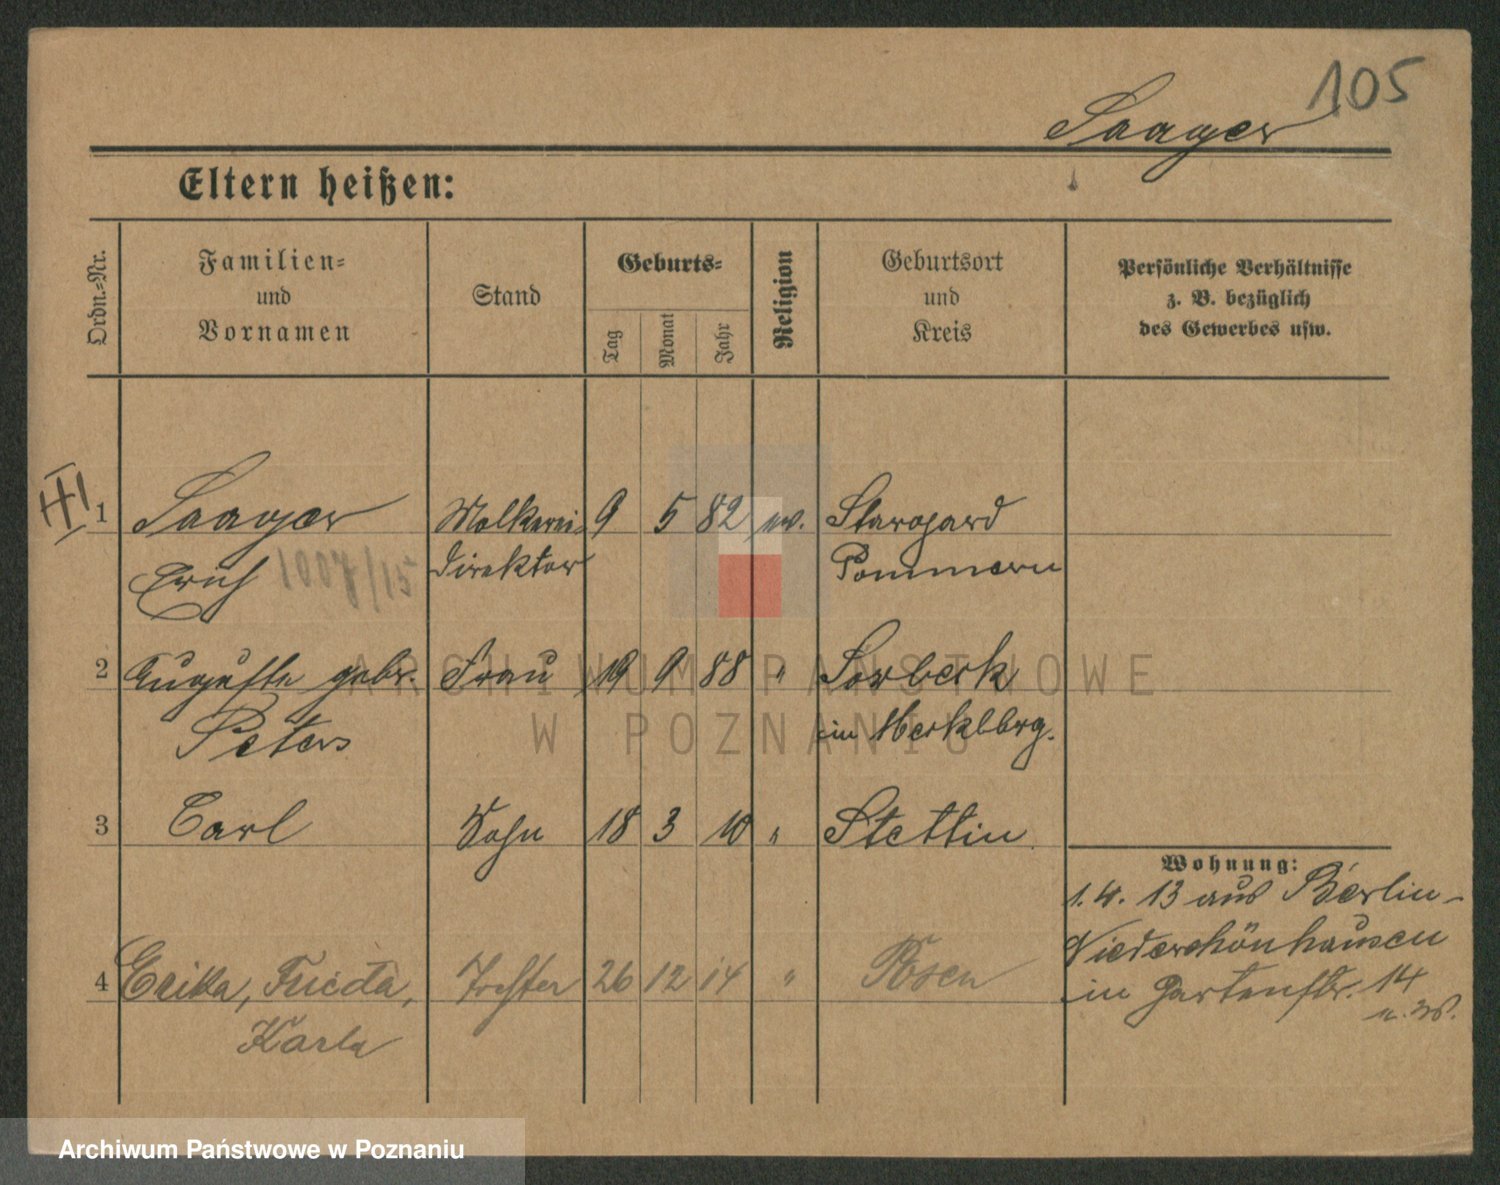 105
Saager
Eltern heißen:
Ordn.-Nr.
Familien-
und
Vornamen
Stand
Geburts-
Tag
Monat
Jahr
Religion
Geburtsort
und
Kreis
Persönliche Verhältnisse
z. B. bezüglich
des Gewerbes usw.
1 Saager Molkerei- 9 5 82 ev. Stargard
Erich 1007/15 direktor Pommern
2 Auguste gebr. Frau 19 9 88 " Sorbeck
Peters in Mecklbrg.
3 Carl Sohn 18 3 10 " Stettin
Wohnung:
1.4.13 aus Berlin-
Niederschönhausen
4 Erika, Frieda, Tochter 26 12 14 " Posen
in Gartenstr. 14
Karla
ARCHIWUM PAŃSTWOWE
W POZNANIU
Archiwum Państwowe w Poznaniu